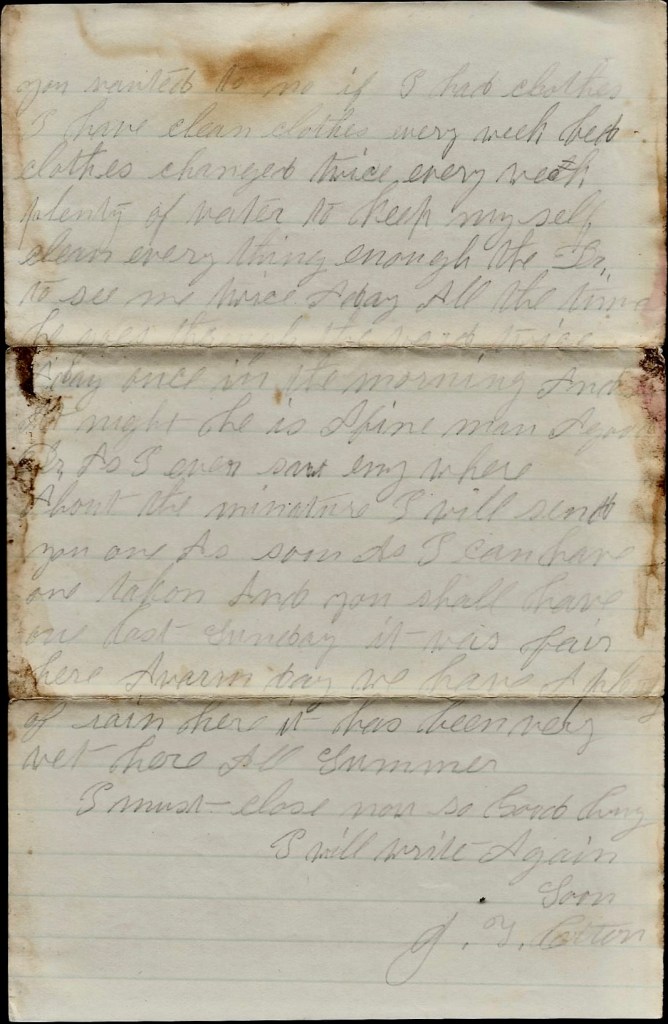 you wanted to no if I had clothes
I have clean clothes every week bed
clothes changed twice every week
plenty of water to keep my self
clean every thing enough the Dr,
to see me twice A day All the time
he goes through the ward twice
A day once in the morning And
At night he is A fine man A good
Dr, As I ever saw eny where
About the miniature I will send
you one As soon As I can have
one taken And you shall have
one last Sunday it was fair
here A warm day we have A plenty
of rain here it has been very
wet here All Summer
I must close now so Good buy
I will write Again
Soon
J. Y. Cotton